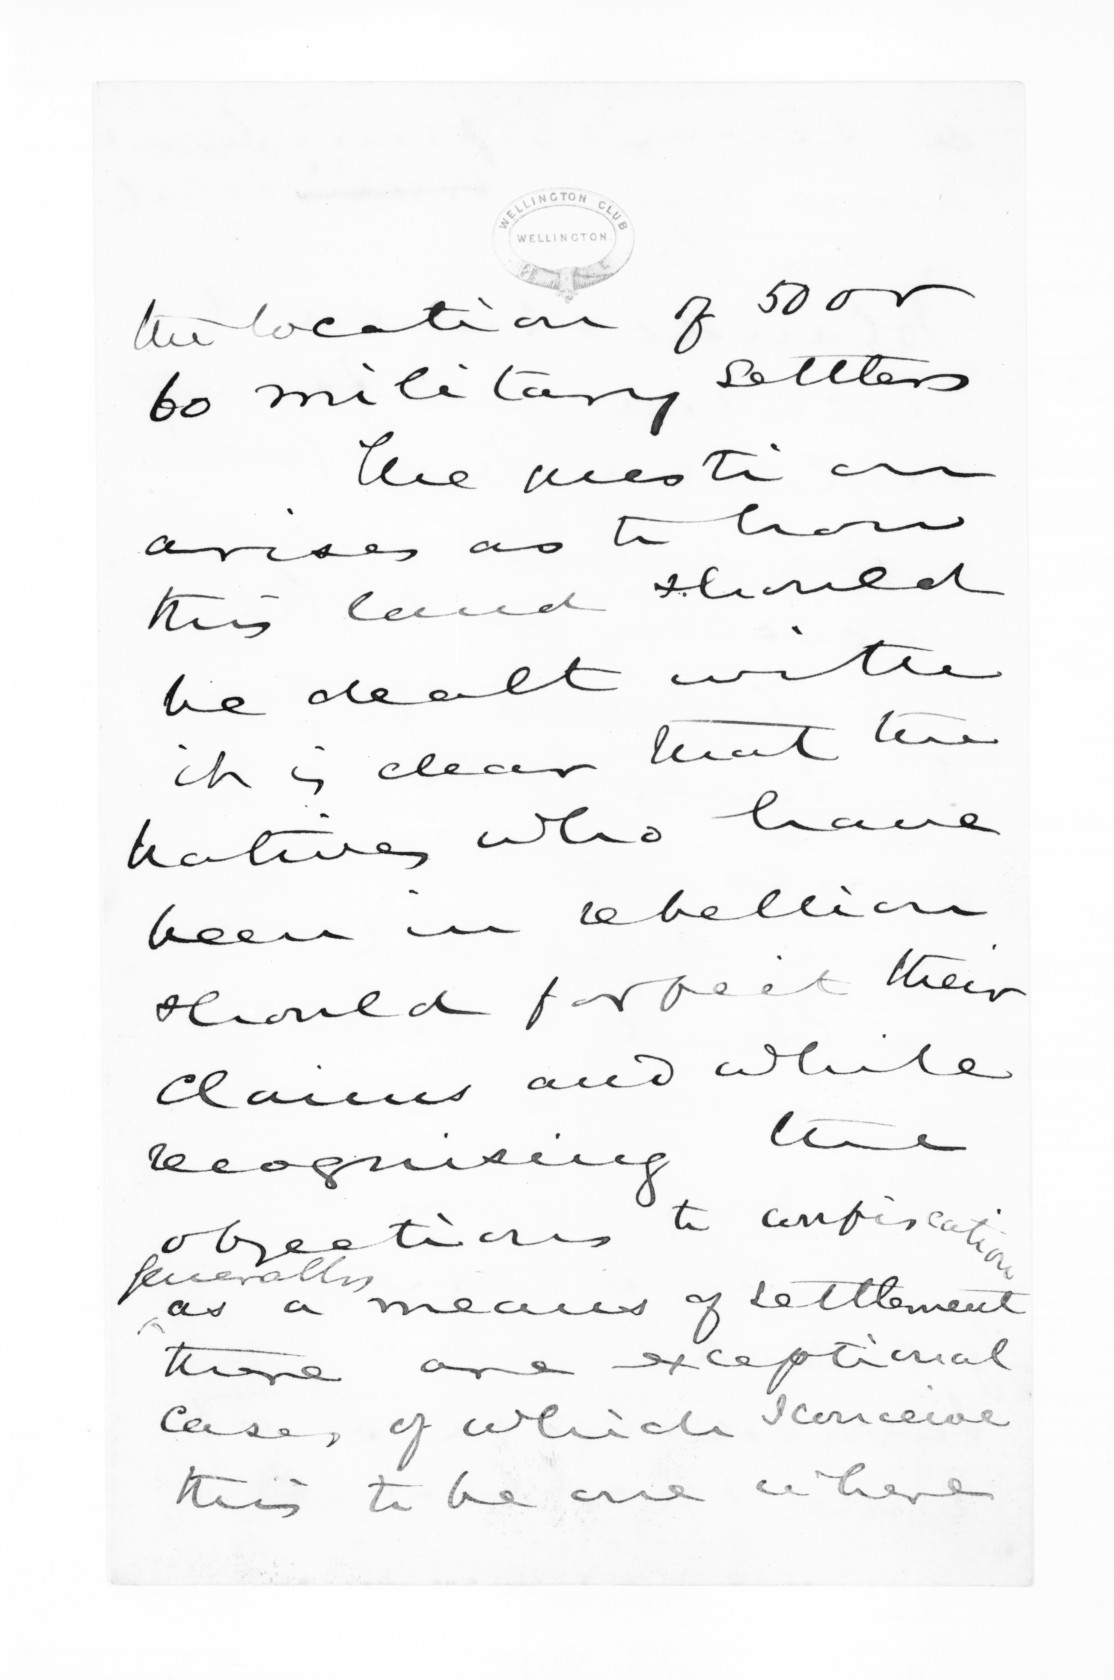 WELLINGTON CLUB
WELLINGTON
the location of 50 or
60 military settlers
The question
arises as to how
this land should
be dealt with
it is clear that the
natives who have
been in rebellion
should forfeit their
claims and while
recognising the
objections to confiscation
generally
as a means of settlement
there are exceptional
cases of which I conceive
this to be one where